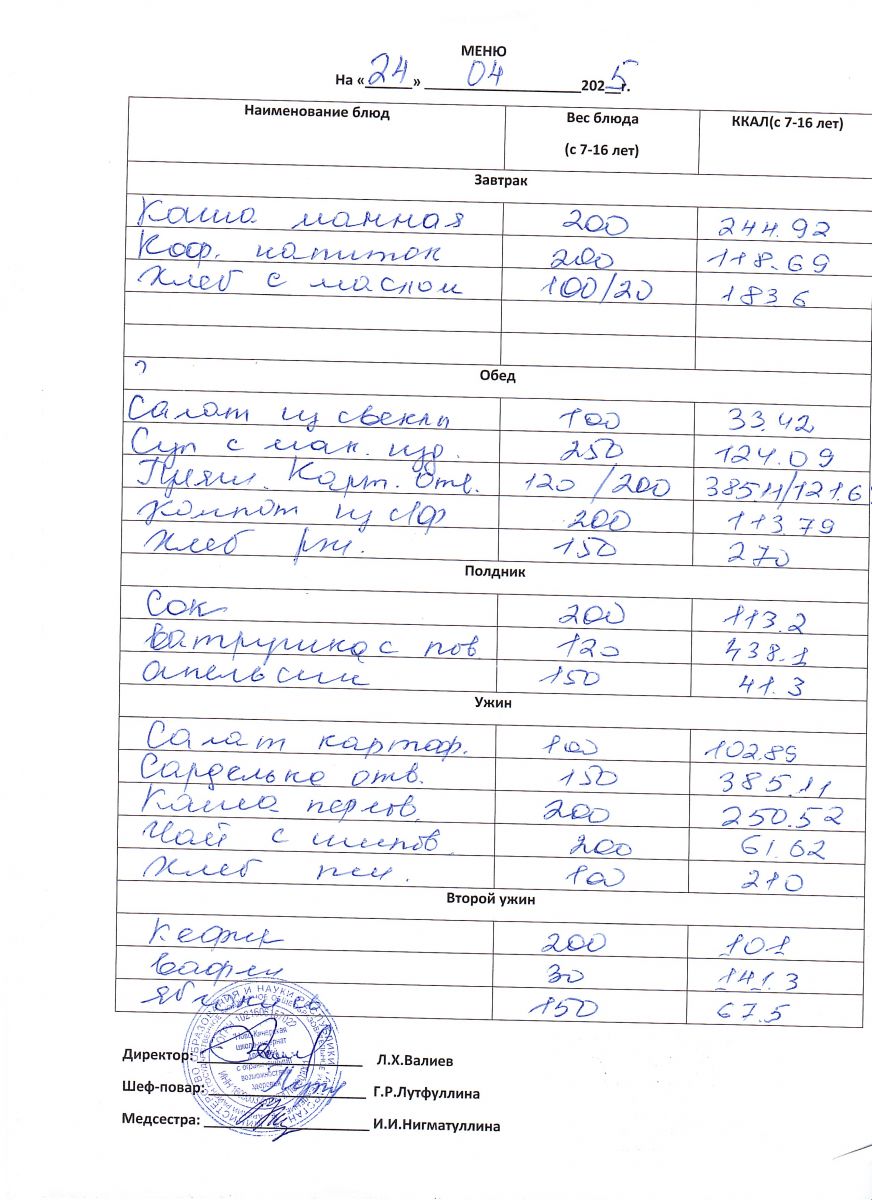 МЕНЮ
На «24» 04 2025 г.
Наименование блюд Вес блюда (с 7-16 лет) ККАЛ(с 7-16 лет)
Завтрак
Каша манная 200 244.92
Коф. напиток 200 118.69
Хлеб с маслом 100/20 183 6
Обед
Салат из свеклы 100 33.42
Суп с мак. изд. 250 124.09
Гуляш. Карт. отв. 120 /200 385.11/121.6
Компот из с/ф 200 113.79
Хлеб рж. 150 270
Полдник
Сок 200 113.2
Ватрушка с пов 120 438.1
Апельсин 150 41.3
Ужин
Салат картоф. 100 102.89
Сарделька отв. 150 385.11
Каша перлов. 200 250.52
Чай с шипов. 200 61.62
Хлеб пш. 100 210
Второй ужин
Кефир 200 101
Вафли 30 141.3
Яблоки 150 67.5
Директор: Л.Х.Валиев
Шеф-повар: Г.Р.Лутфуллина
Медсестра: И.И.Нигматуллина